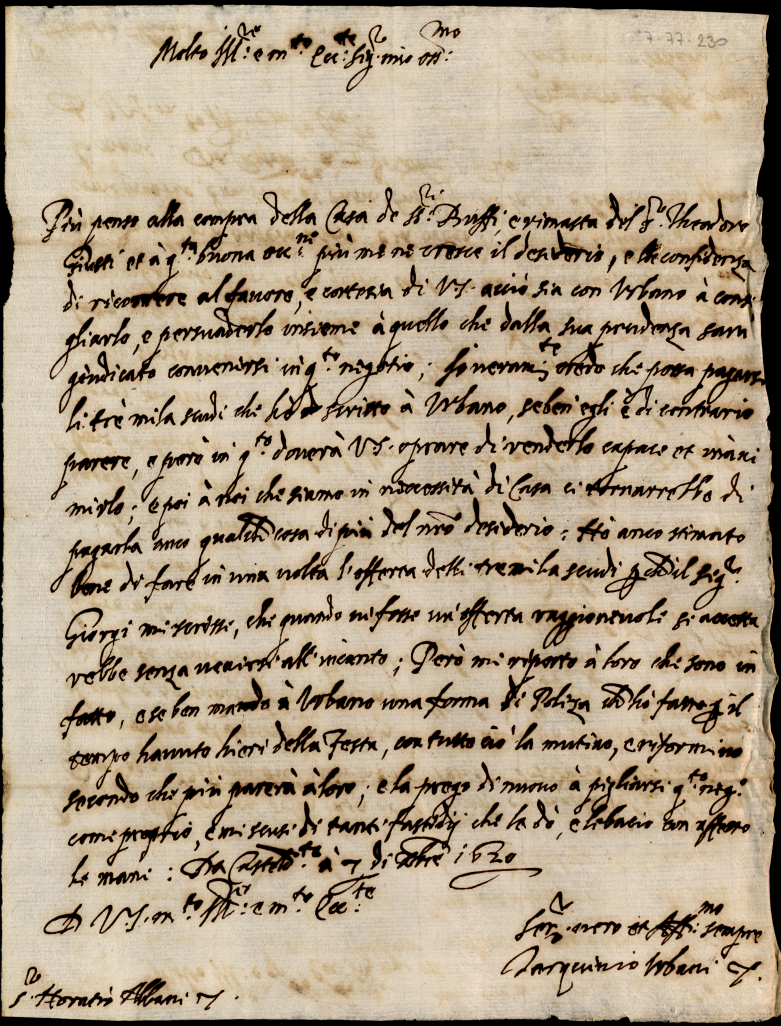 7-77-230
Molto Ill.re e m.to Ecc.te Sig.r mio oss.mo
Più penso alla compra della Casa de SS.ri Buffi, e rimasta del S.r Theodoro
Giusti et à q.ta buona occ.ne più me ne cresce il desiderio, e la confidenza
di ricorrere al favore, e cortesia di VS. acciò sia con Urbano à consi
gliarlo, e persuaderlo insieme à quello che dalla sua prudenza sarà
giudicato convenirsi in q.to negotio; Io veram.te credo che possa pagarsi
li tre mila scudi che hò scritto à Urbano, seben egli è di contrario
parere, e però in q.to doverà VS. oprare di renderlo capace et inani
mirlo; e poi à noi che siamo in necessità di Casa ci tornarebbe di
pagarla anco qualche cosa di più del nro desiderio: Hò anco stimato
bene di fare in una volta l'offerta delli tre mila scudi p che il Sig.r
Giorgi mi scrisse, che quando vi fosse un'offerta raggionevole si accetta
rebbe senza venirsi all'incanto; Però mi riporto à loro che sono in
fatto, e seben mando à Urbano una forma di Poliza che hò fatto p il
tempo havuto hieri della Festa, con tutto ciò la mutino, e riformino
secondo che più parerà à loro; e la prego di nuovo à pigliarsi q.to neg.o
come proprio, e mi scusi di tanti fastidij che le dò, e le bacio con affetto
le mani: Da Casteld.te à 7 di Xbre 1620
D VS. m.to Ill.re e m.to Ecc.te
Ser.r vero et Aff.mo sempre
Tarquinio Urbani
S.r Horatio Albani